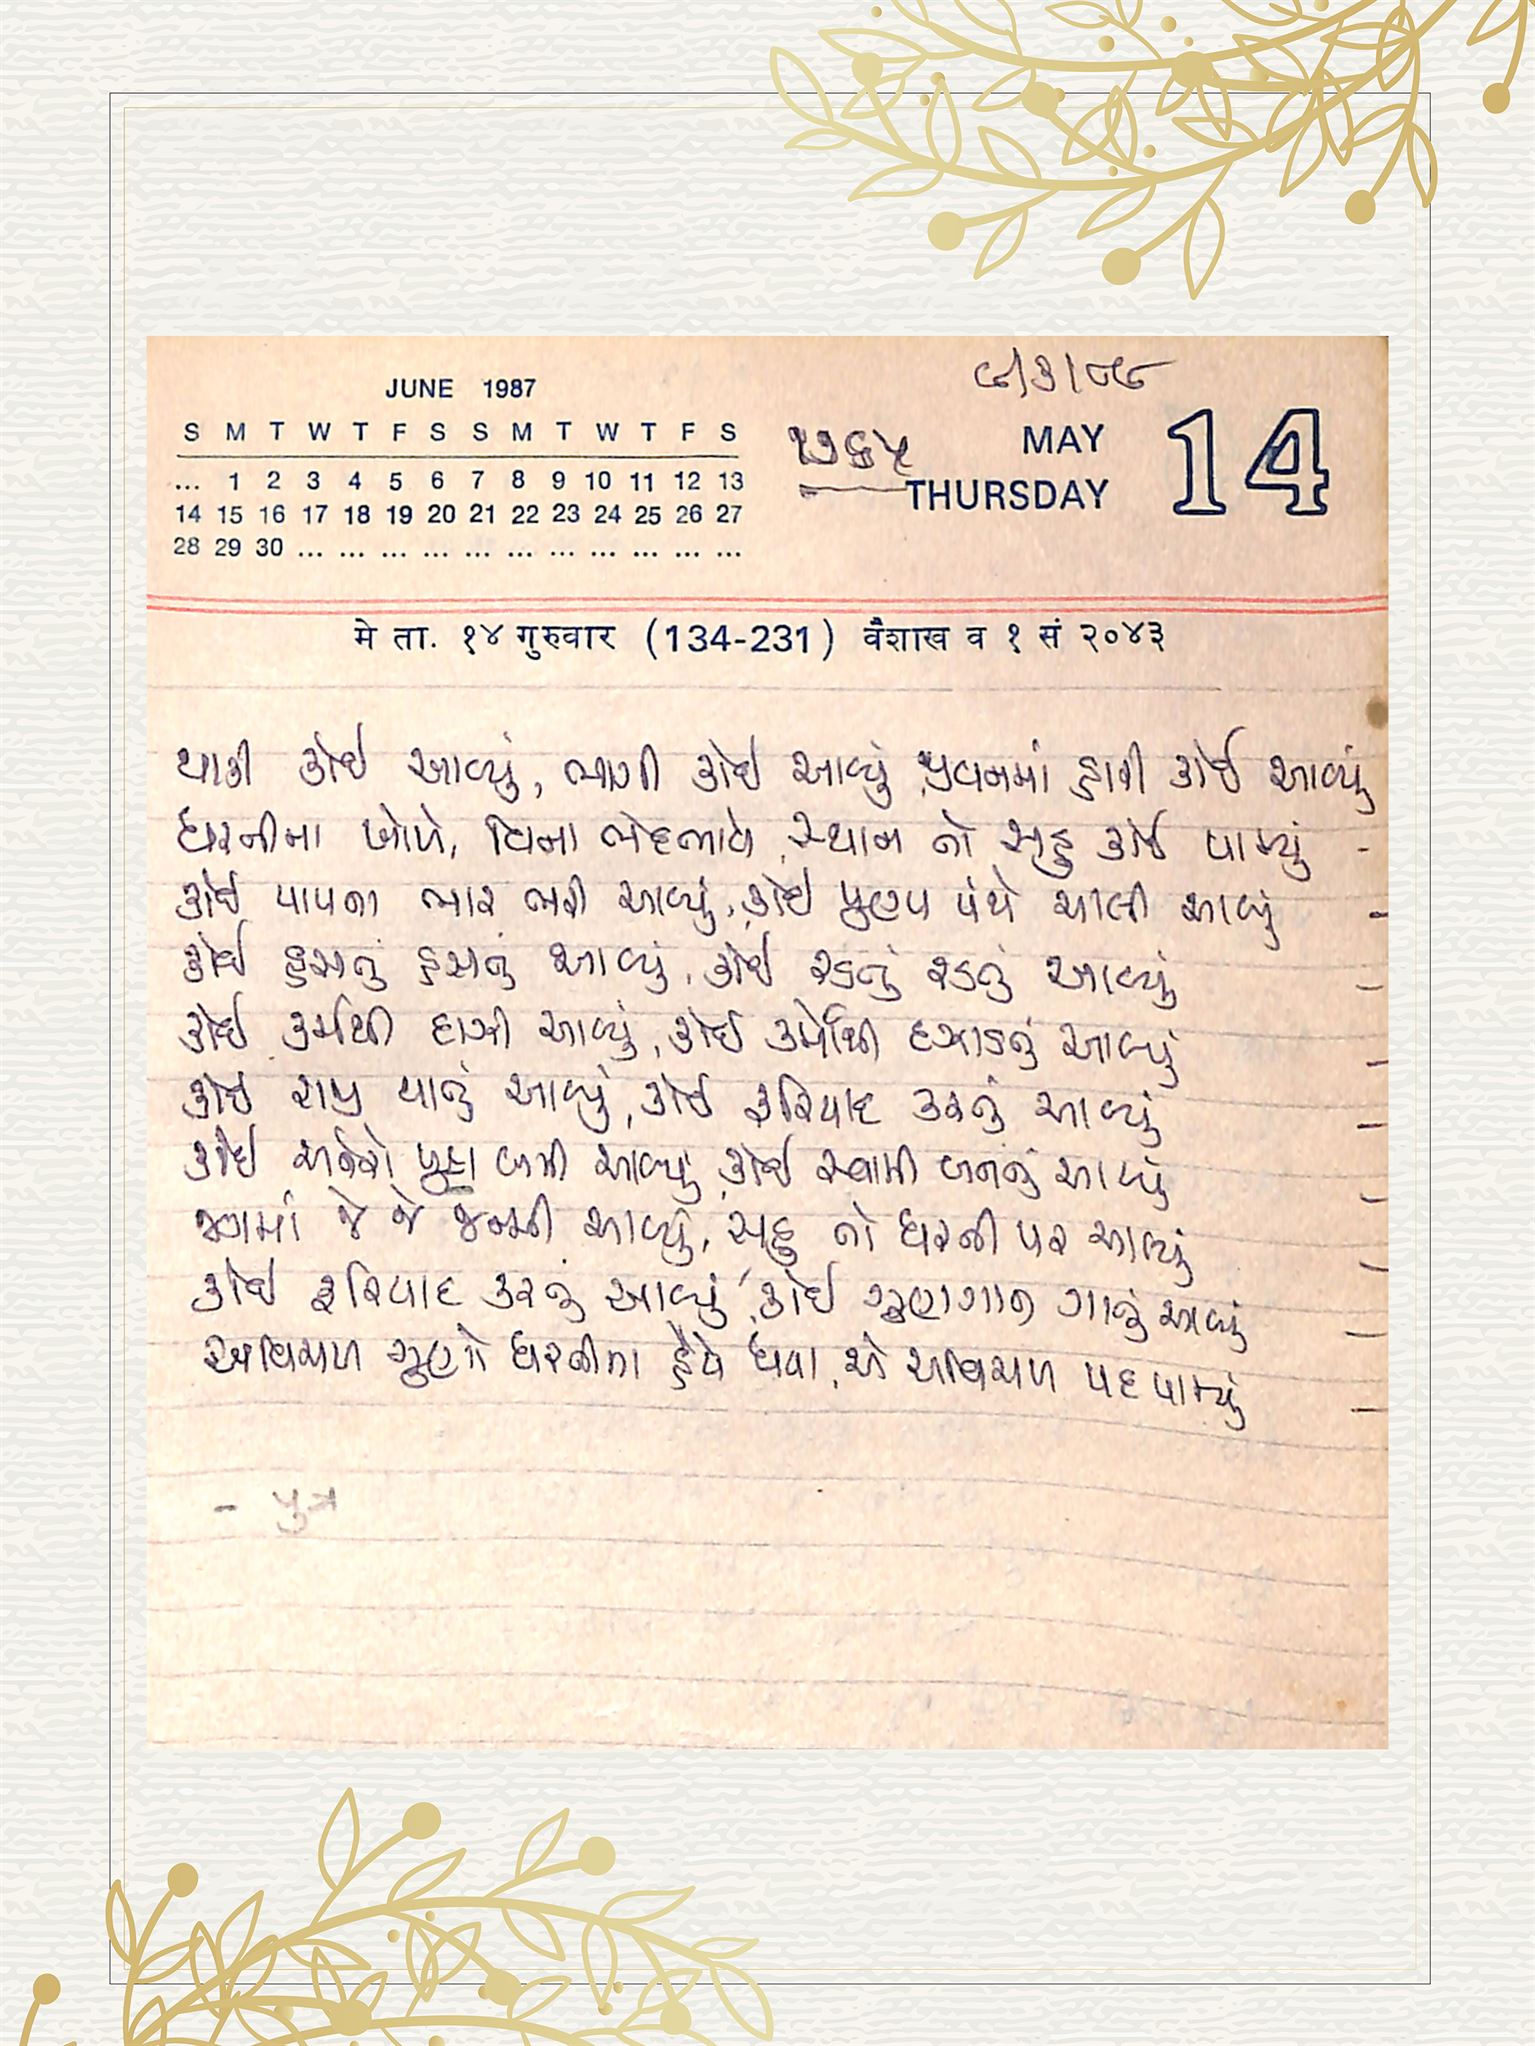 ૯/૩/૮૯
JUNE 1987
S M T W T F S S M T W T F S
... 1 2 3 4 5 6 7 8 9 10 11 12 13
14 15 16 17 18 19 20 21 22 23 24 25 26 27
28 29 30 ... ... ... ... ... ... ... ... ... ... ...
MAY
THURSDAY
14
मे ता. १४ गुरुवार (134-231) वैशाख व १ सं २०४३
થાકી કોઈ આવ્યું, ભાગી કોઈ આવ્યું, જીવનમાં હારી કોઈ આવ્યું
ધરતીના ખોળે, વિના ભેદભાવે, સ્થાન તો સહુ કોઈ પામ્યું -
કોઈ પાપના ભાર ભરી આવ્યું, કોઈ પુણ્ય પંથે ચાલી આવ્યું -
કોઈ હસતું હસતું આવ્યું, કોઈ રડતું રડતું આવ્યું -
કોઈ કર્મથી દાઝી આવ્યું, કોઈ કર્મોથી દઝાડતું આવ્યું -
કોઈ રાજી થાતું આવ્યું, કોઈ ફરિયાદ કરતું આવ્યું -
કોઈ અનેરો પૂજા બની આવ્યું, કોઈ સ્વામી બનતું આવ્યું -
જગમાં જે જે જન્મી આવ્યું, સહુ તો ધરતી પર આવ્યું -
કોઈ ફરિયાદ કરતું આવ્યું, કોઈ ગુણગાન ગાતું આવ્યું -
અવિચળ ગુણો ધરતીના હૈયે ધર્યા, એ અવિચળ પદ પામ્યું -